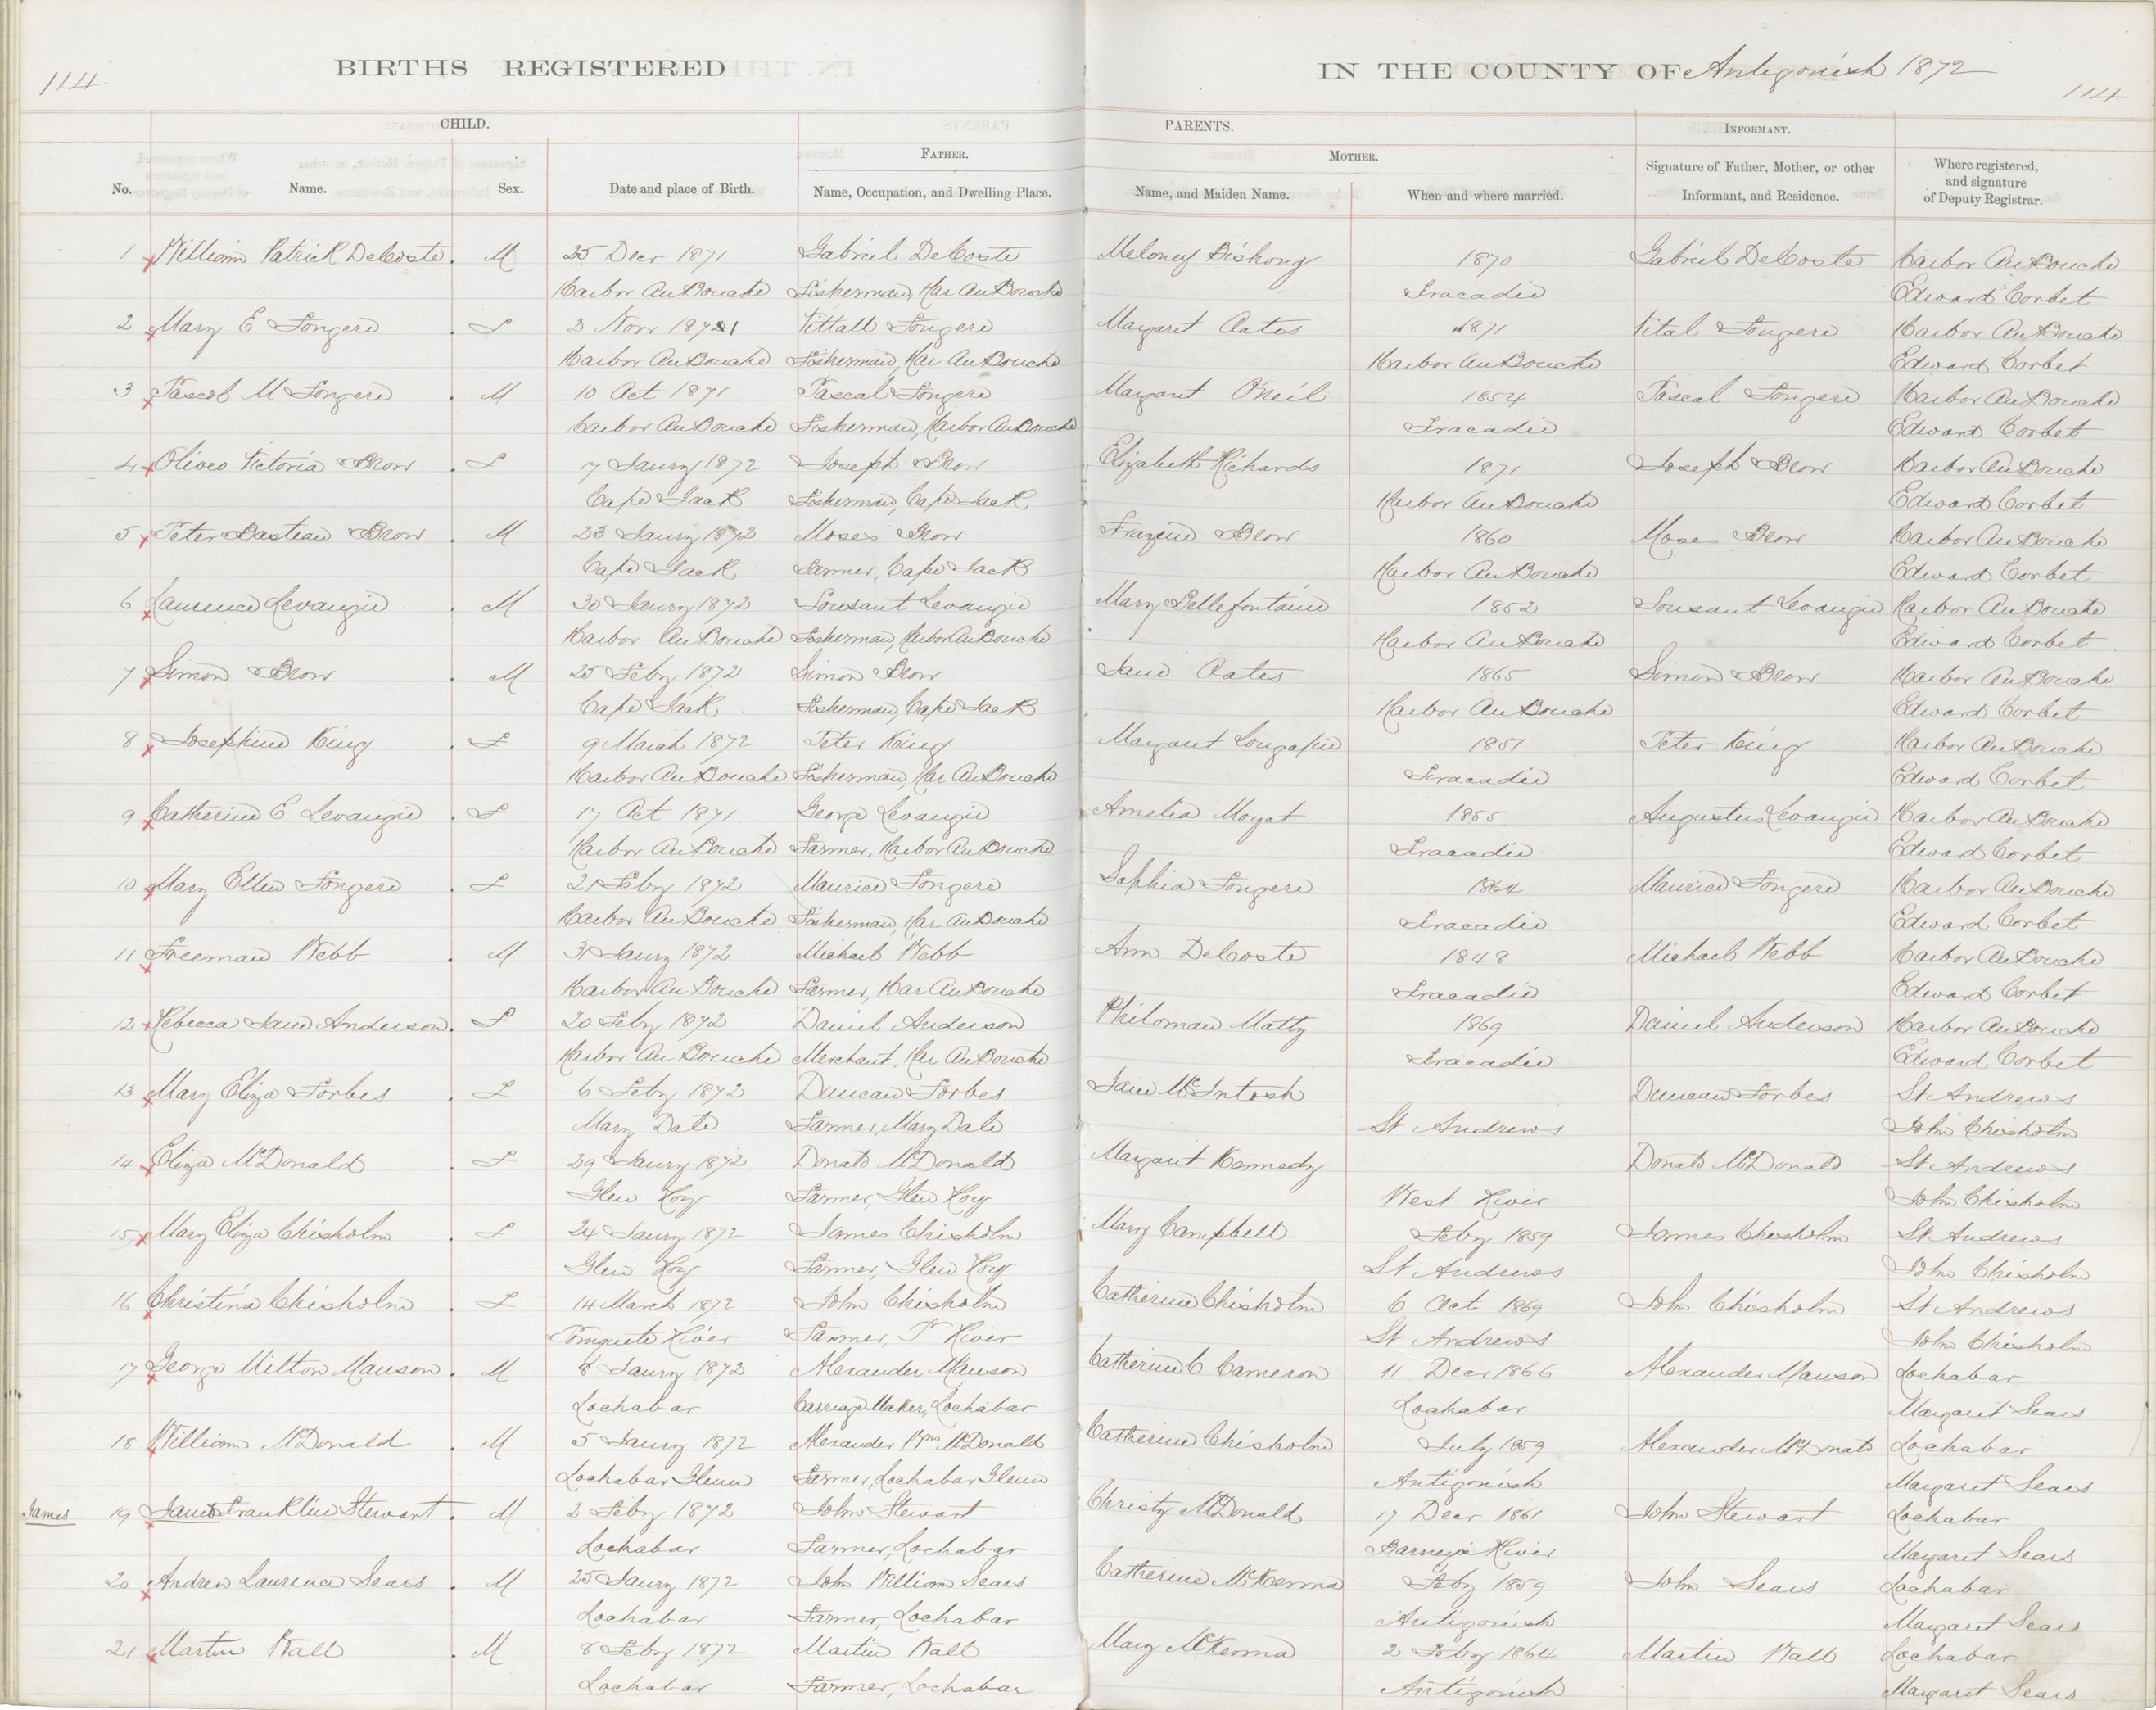 114
BIRTHS REGISTERED
IN THE COUNTY OF Antigonish 1872
114
CHILD.
PARENTS.
INFORMANT.
FATHER.
MOTHER.
Signature of Father, Mother, or other
Where registered,
and signature
No. Name. Sex. Date and place of Birth. Name, Occupation, and Dwelling Place. Name, and Maiden Name. When and where married. Informant, and Residence. of Deputy Registrar.
1 William Patrick DeCoste M 25 Decr 1871 Gabriel DeCoste Meloney 1870 Gabriel DeCoste Harbor AuBouche
Harbor AuBouche Fisherman, Har AuBouche Tracadie Edward Corbet
2 Mary E Fongere F 2 Novr 1871 Vittall Fongere Margaret Oates 1871 Vital Fongere Harbor AuBouche
Harbor AuBouche Fisherman, Har AuBouche Harbor AuBouche Edward Corbet
3 Pascal M Fongere M 10 Oct 1871 Pascal Fongere Margaret O'Neil 1854 Pascal Fongere Harbor AuBouche
Harbor AuBouche Fisherman, Harbor AuBouche Tracadie Edward Corbet
4 Olive Victoria Brow F 17 Jaury 1872 Joseph Brow Elizabeth Richards 1871 Joseph Brow Harbor AuBouche
Cape Jack Fisherman, Cape Jack Harbor AuBouche Edward Corbet
5 Peter Bastean Brow M 23 Jaury 1872 Moses Brow Frazine Brow 1860 Moses Brow Harbor AuBouche
Cape Jack Farmer, Cape Jack Harbor AuBouche Edward Corbet
6 Laurence Levangie M 30 Jaury 1872 Tousant Levangie Mary Bellefontaine 1852 Tousant Levangie Harbor AuBouche
Harbor AuBouche Fisherman, Harbor AuBouche Harbor AuBouche Edward Corbet
7 Simon Brow M 25 Feby 1872 Simon Brow Jane Oates 1865 Simon Brow Harbor AuBouche
Cape Jack Fisherman, Cape Jack Harbor AuBouche Edward Corbet
8 Josephine King F 9 March 1872 Peter King Margaret 1851 Peter King Harbor AuBouche
Harbor AuBouche Fisherman, Har AuBouche Tracadie Edward Corbet
9 Catherine E Levangie F 17 Oct 1871 George Levangie Amelia 1855 Augustus Levangie Harbor AuBouche
Harbor AuBouche Farmer, Harbor AuBouche Tracadie Edward Corbet
10 Mary Ellen Fongere F 21 Feby 1872 Maurice Fongere Sophia Fongere 1864 Maurice Fongere Harbor AuBouche
Harbor AuBouche Fisherman, Har AuBouche Tracadie Edward Corbet
11 Freeman Webb M 31 Jaury 1872 Michael Webb Ann DeCoste 1848 Michael Webb Harbor AuBouche
Harbor Au Bouche Farmer, Har AuBouche Tracadie Edward Corbet
12 Rebecca Jane Anderson F 20 Feby 1872 Daniel Anderson Philomane Matty 1869 Daniel Anderson Harbor AuBouche
Harbor Au Bouche Merchant, Har AuBouche Tracadie Edward Corbet
13 Mary Eliza Forbes F 6 Feby 1872 Duncan Forbes Jane McIntosh Duncan Forbes St Andrews
Mary Dale Farmer, Mary Dale St Andrews John Chisholm
14 Eliza McDonald F 29 Jaury 1872 Donald McDonald Margaret Kennedy Donald McDonald St Andrews
Glen Roy Farmer, Glen Roy West River John Chisholm
15 Mary Eliza Chisholm F 24 Jaury 1872 James Chisholm Mary Campbell Feby 1859 James Chisholm St Andrews
Glen Roy Farmer, Glen Roy St Andrews John Chisholm
16 Christina Chisholm F 14 March 1872 John Chisholm Catherine Chisholm 6 Oct 1869 John Chisholm St Andrews
River Farmer, P River St Andrews John Chisholm
17 George Milton Manson M 8 Jaury 1872 Alexander Manson Catherine C Cameron 11 Decr 1866 Alexander Manson Lochabar
Lochabar Carriage Maker, Lochabar Lochabar Margaret Sears
18 William McDonald M 5 Jaury 1872 Alexander Wm McDonald Catherine Chisholm July 1859 Alexander McDonald Lochabar
Lochabar Glenn Farmer, Lochabar Glenn Antigonish Margaret Sears
James 19 Franklin Stewart M 2 Feby 1872 John Stewart Christy McDonald 17 Decr 1861 John Stewart Lochabar
Lochabar Farmer, Lochabar Barneys River Margaret Sears
20 Andrew Laurence Sears M 25 Jaury 1872 John William Sears Catherine McKenna Feby 1859 John Sears Lochabar
Lochabar Farmer, Lochabar Antigonish Margaret Sears
21 Martin Wall M 8 Feby 1872 Martin Wall Mary McKenna 2 Feby 1864 Martin Wall Lochabar
Lochabar Farmer, Lochabar Antigonish Margaret Sears